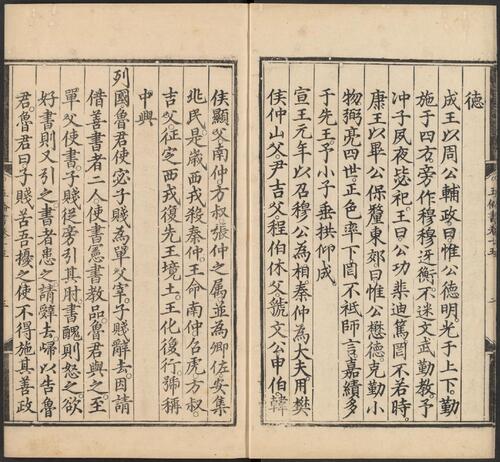 德
成王以周公輔政曰惟公德明光于上下勤
施于四方旁作穆穆迓衡不迷文武勤教予
冲子夙夜毖祀王曰公功棐迪篤罔不若時
康王以畢公保釐東郊曰惟公懋德克勤小
物弼亮四世正色率下罔不祗師言嘉績多
于先王予小子垂拱仰成
宣王元年以召穆公為相秦仲為大夫用樊
侯仲山父尹吉父程伯休父虢文公申伯韓
侯顯父南仲方叔張仲之属並為卿佐安集
兆民是歲西戎殺秦仲王命南仲召虎方叔
吉父征定西戎復先王境土王化復行號稱
中興
列國魯君使宓子賤為單父宰子賤辭去因請
借善書者二人使書憲書教品魯君與之至
單父使書子賤從旁引其肘書醜則怒之欲
好書則又引之書者患之請辭去歸以告魯
君魯君曰子賤苦吾擾之使不得施其善政